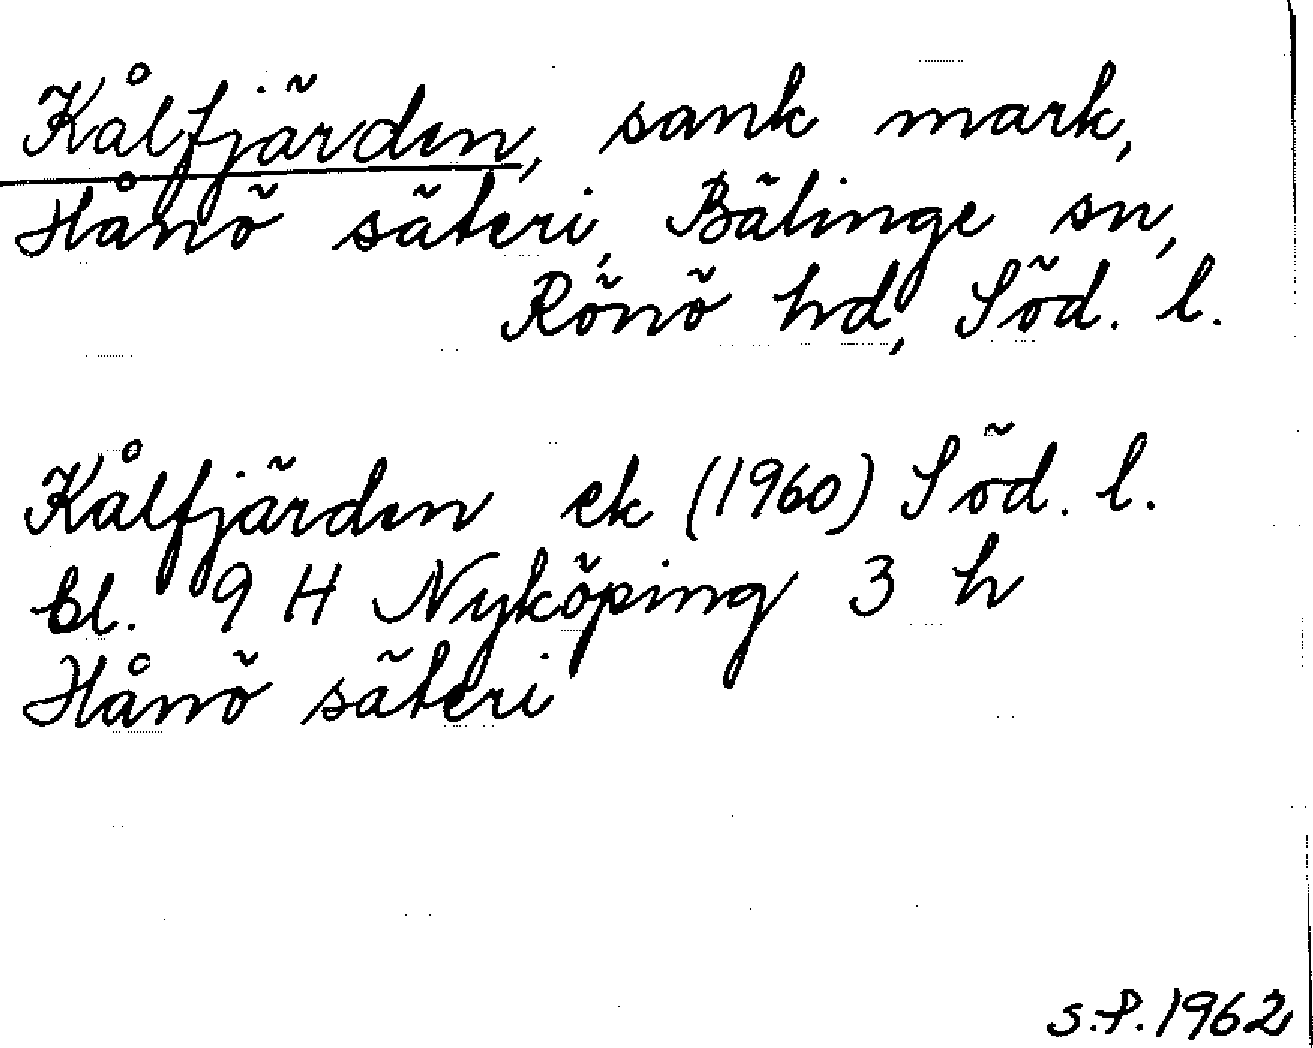 Kålfjärden, sank mark,
Hånö säteri, Bälinge sn,
Rönö hd, Söd. l.
Kålfjärden ek (1960) Söd. l.
bl. 9 H Nyköping 3 h
Hånö säteri
S.P. 1962